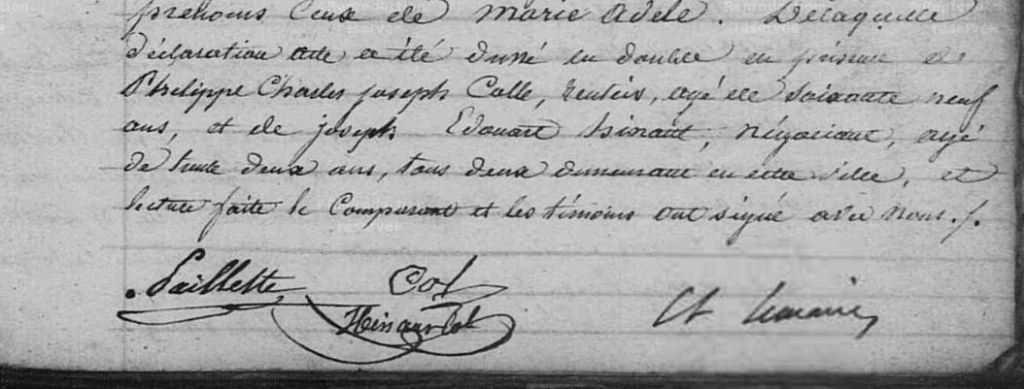 prénoms ceux de Marie Adèle. Delaquelle
déclaration acte a été dressé en double en présence de
Philippe Charles Joseph Colle, rentier, agé de soixante neuf
ans, et de Joseph Edouart hinaut, négociant, agé
de trente deux ans, tous deux demeurant en cette ville, et
lecture faite le Comparant et les témoins ont signé avec nous ./.
Paillette Col
Hinaut Col Ch Lemaire